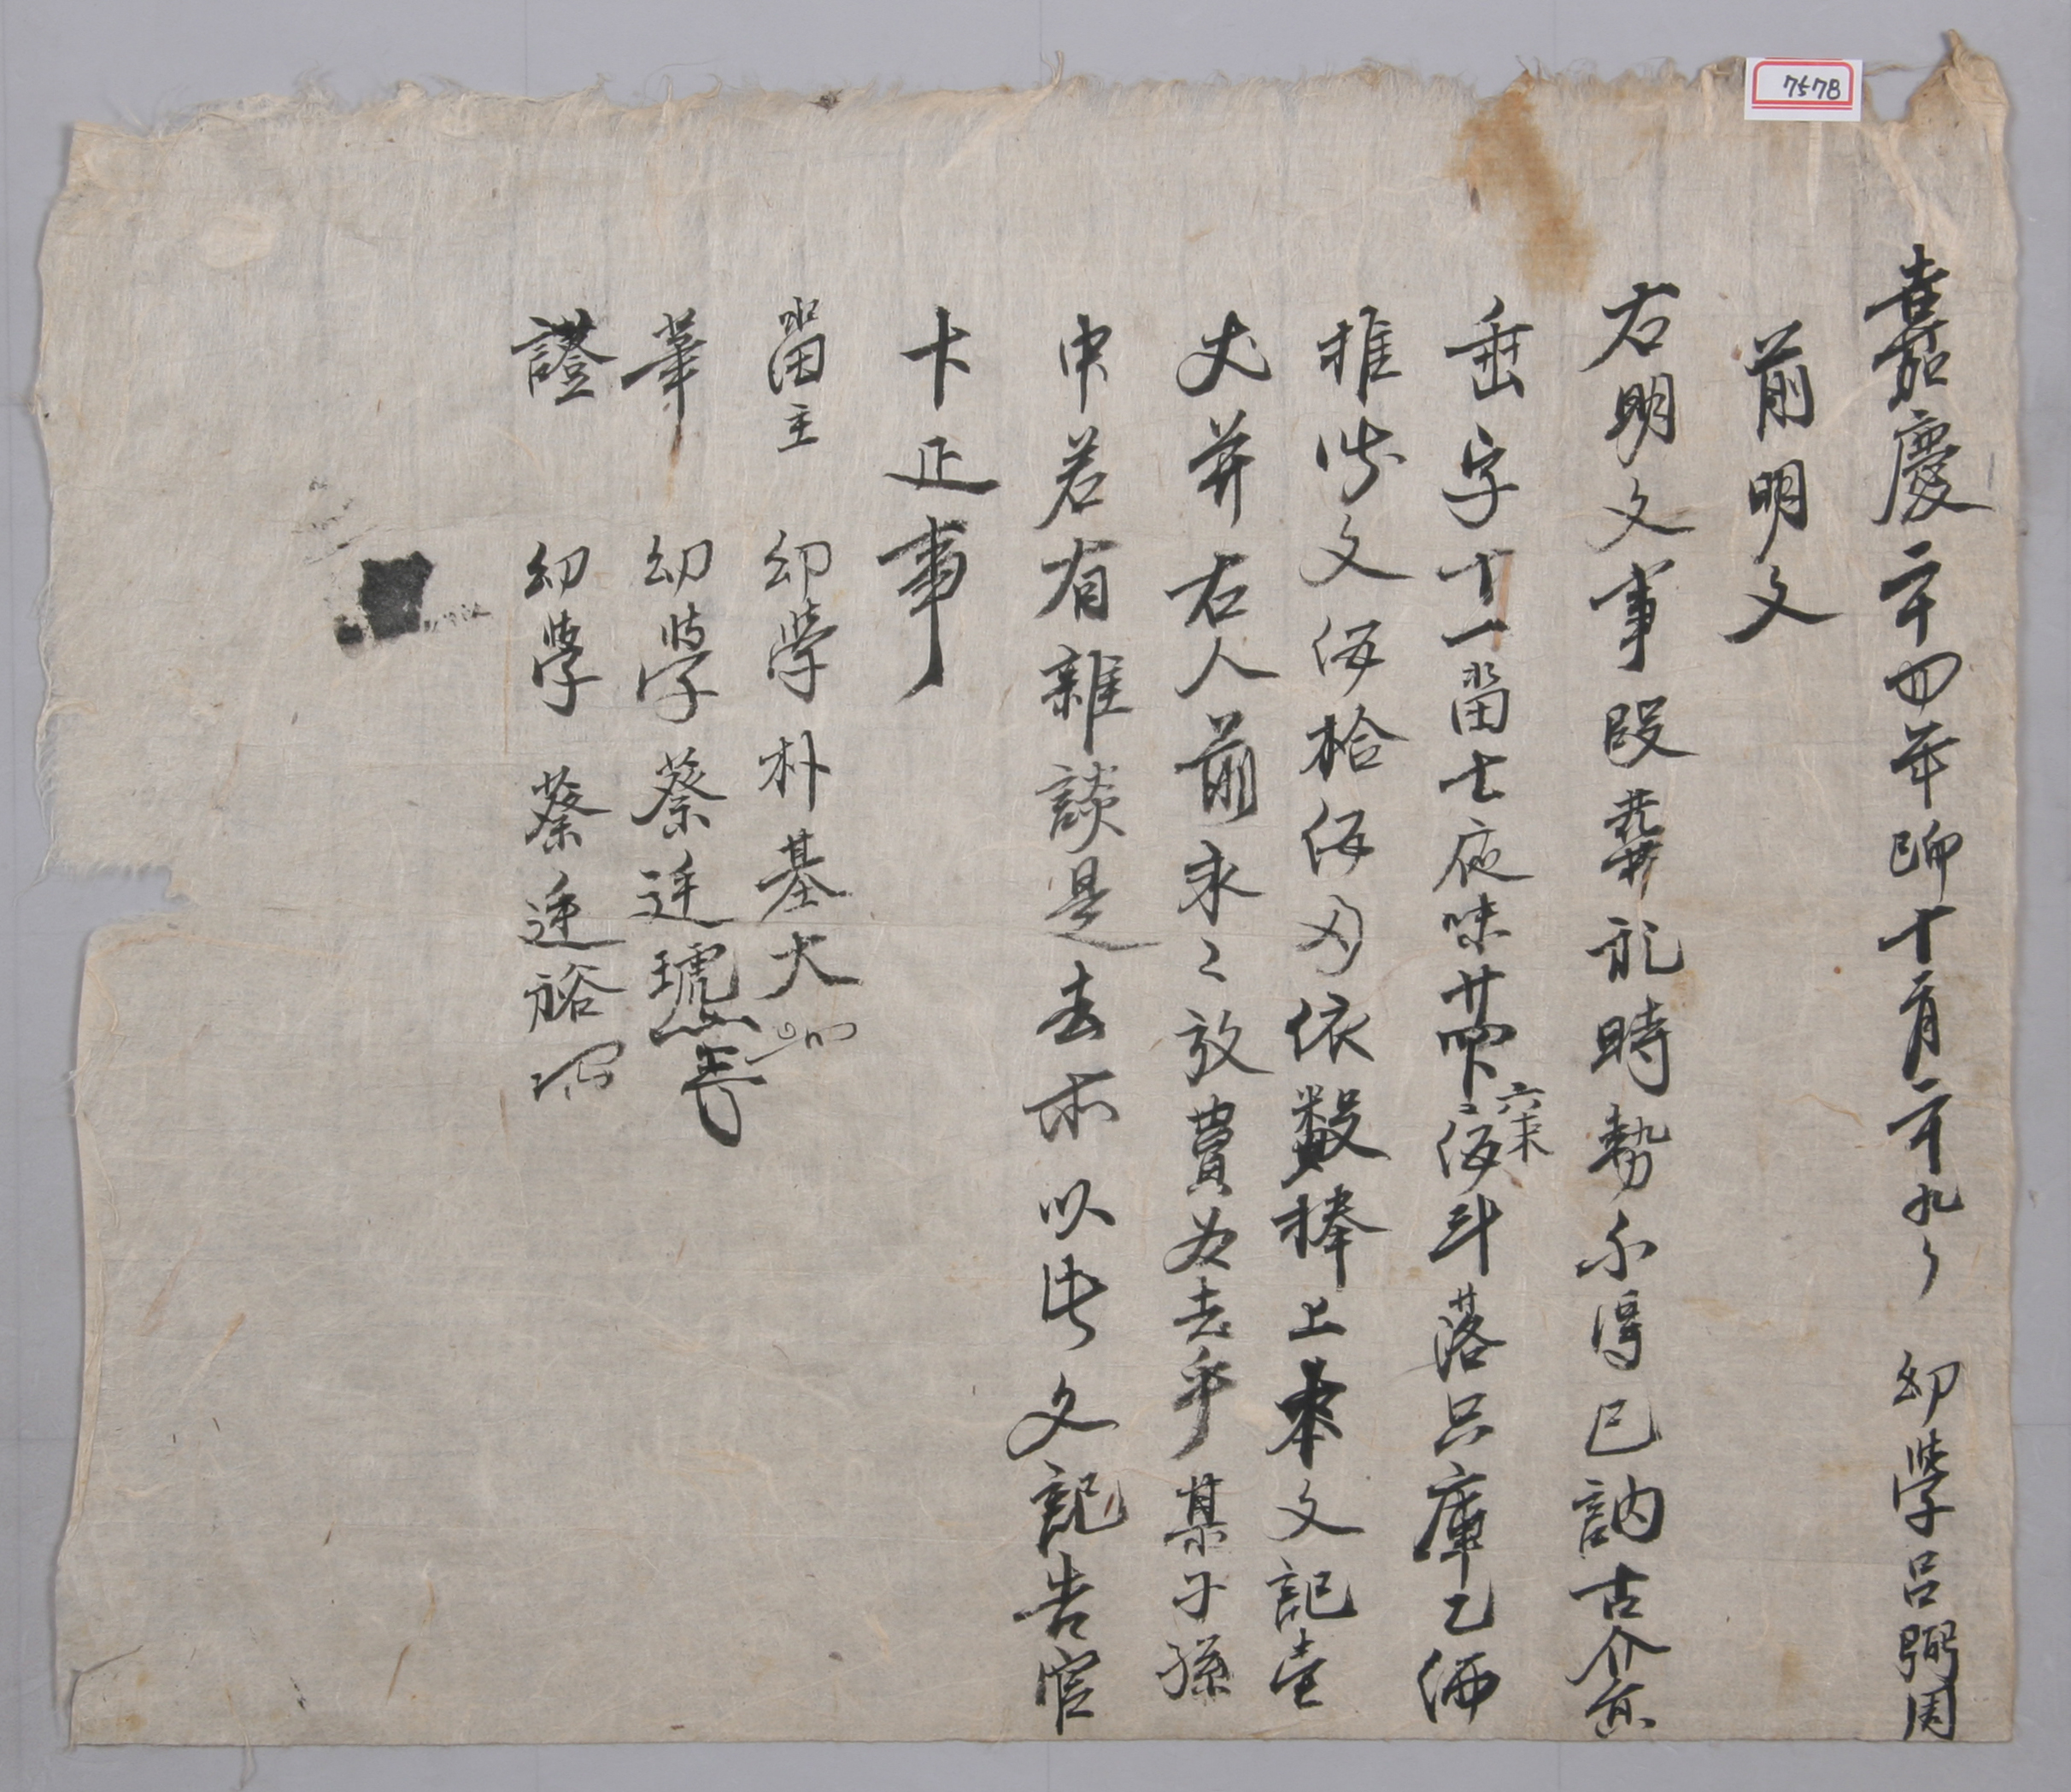 7578
嘉慶二十四年己卯十一月二十九日 幼學呂弼周
前明文
右明文事段粪飛時勢不得已訥古介員
垂字十一畓士庫味廿四卜六束㐣伍斗落只庫乙価
推此文伍拾伍刄依數捧上本文記壹
丈并右人前永〻放賣爲去乎某子孫
中若有雜談是去等以此文記告官
卞正事
畓主 幼學朴基大
筆 幼學蔡廷琥
證 幼學蔡廷裕